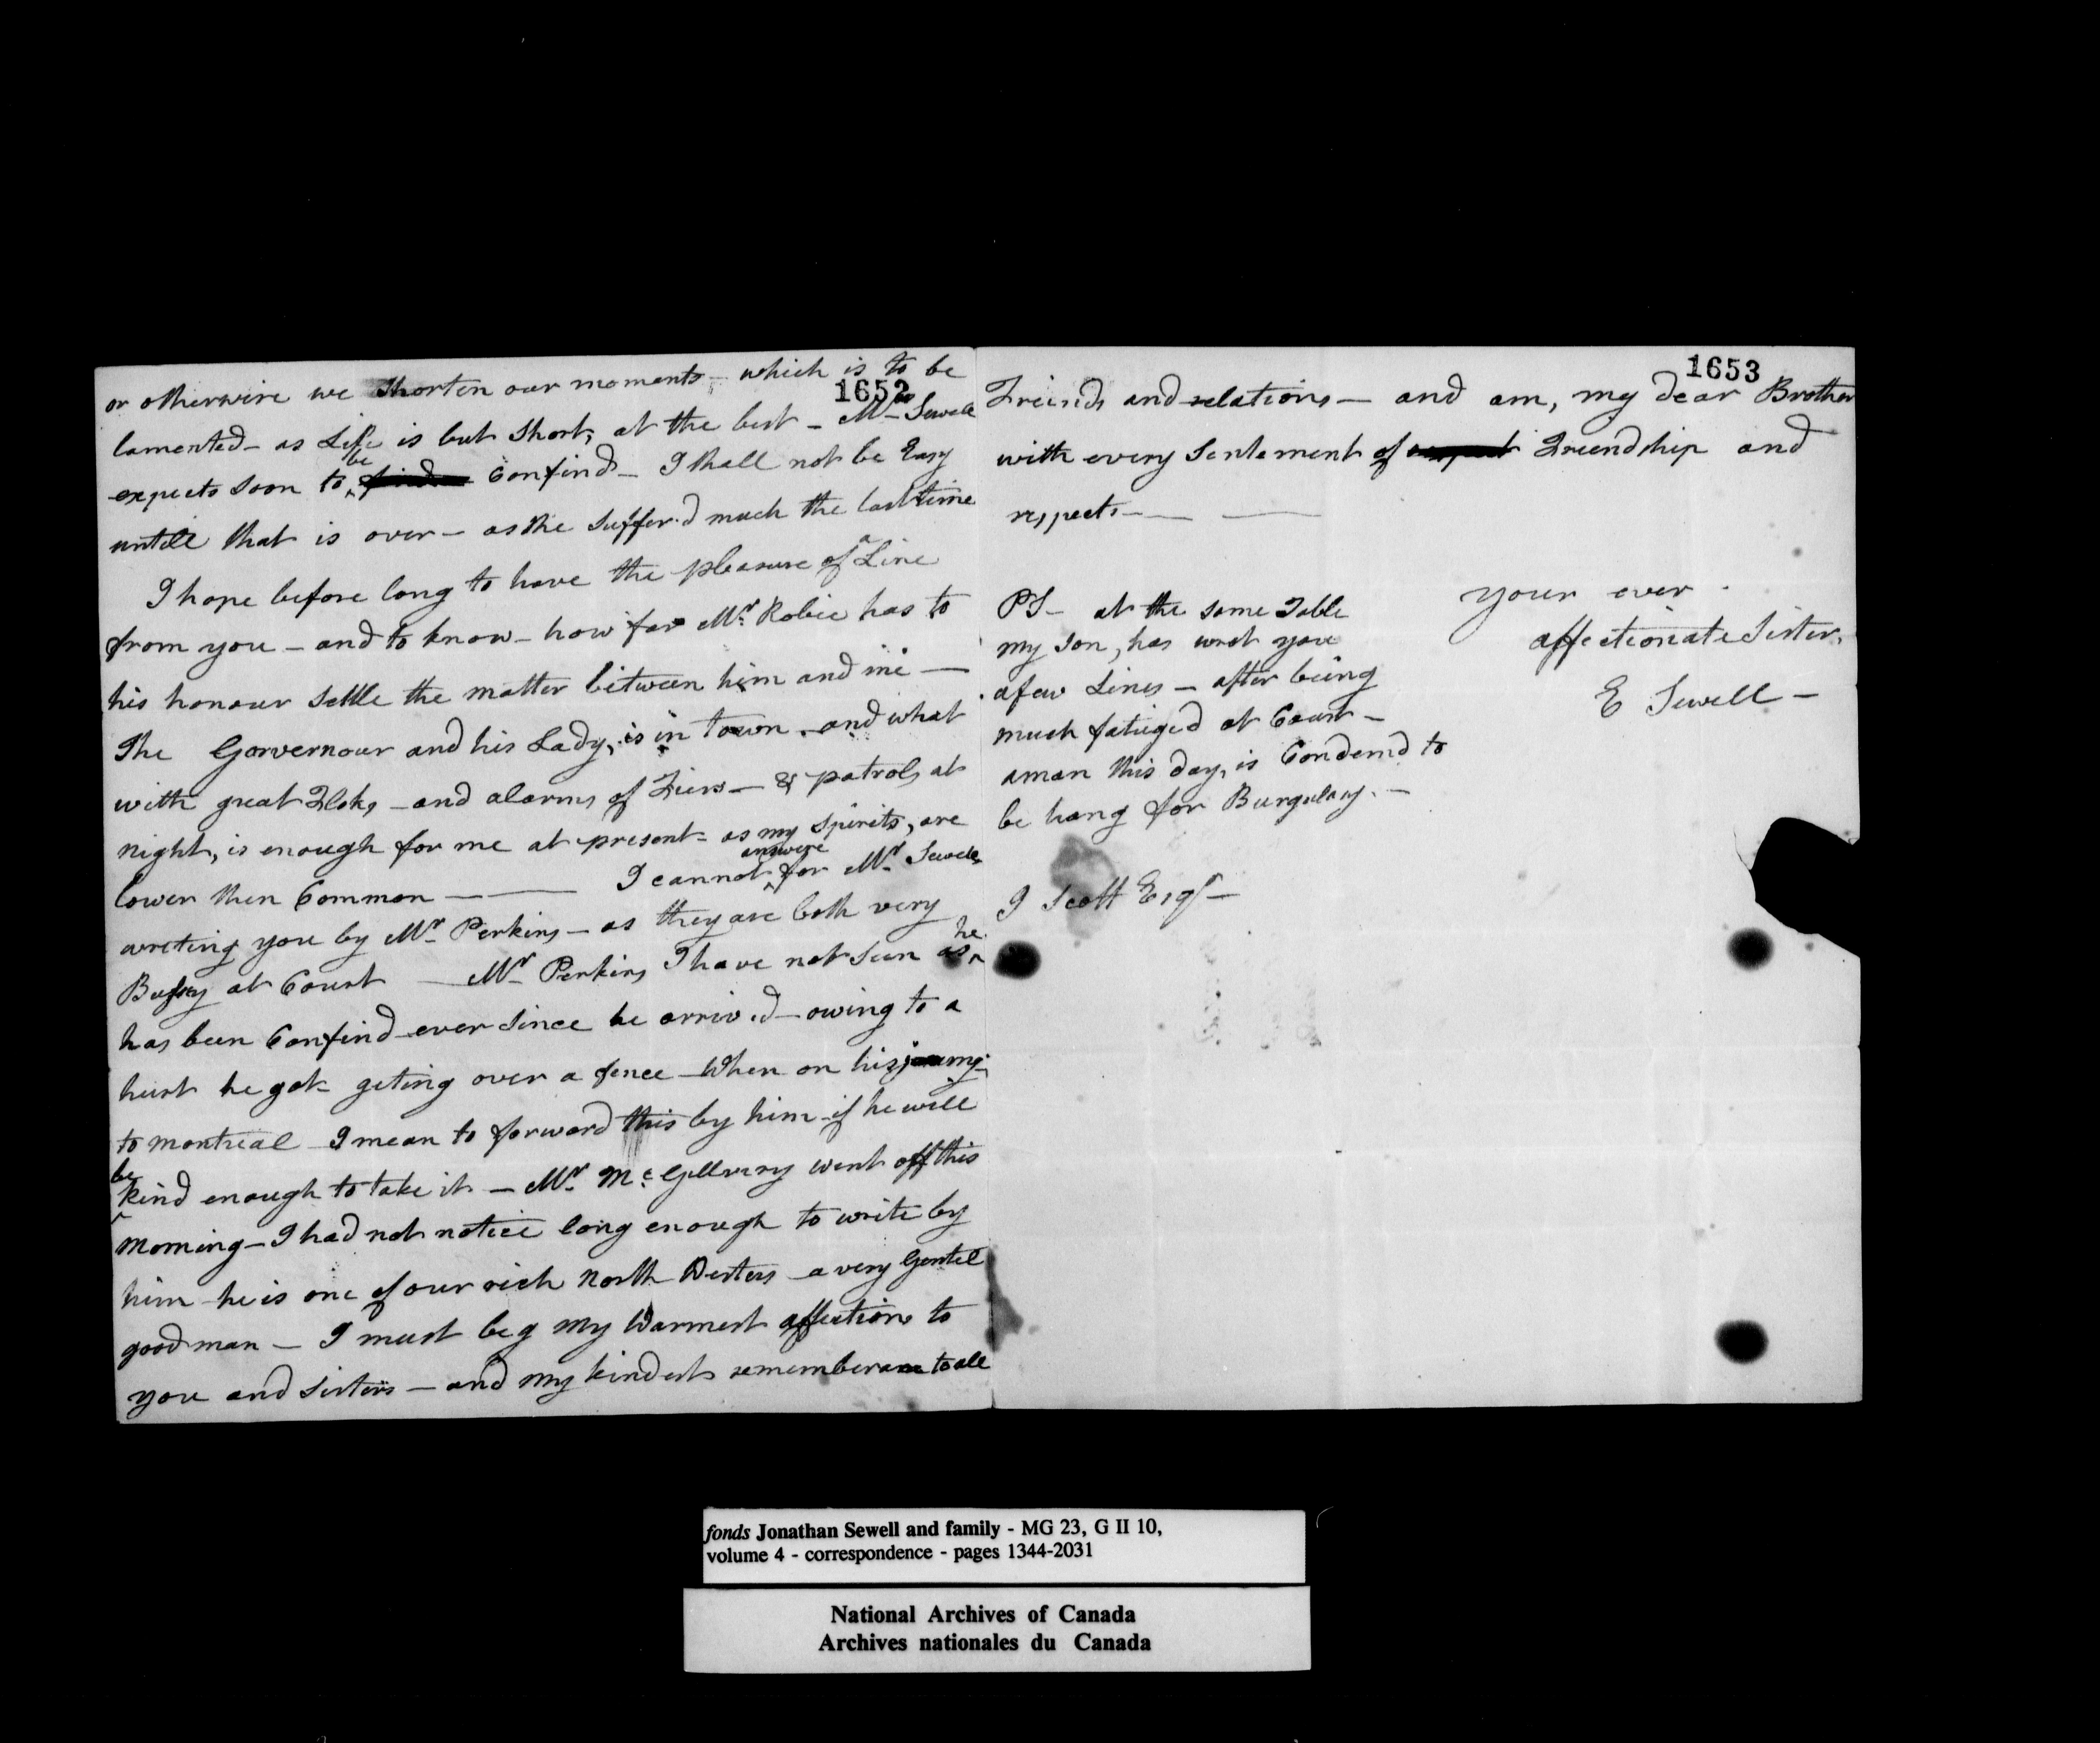 1652
or otherwire we shorten our moments - which is to be
lamented - as Life is but short, at the best - Mrs Sewell
expects soon to be Confind - I shall not be Easy
untill that is over - as she suffer'd much the last time
I hope before long to have the pleasure of a Line
from you - and to know - how far Mr. Robie has to
his honour settle the matter between him and me —
The Gorvernour and his Lady, is in town - and what
with great - and alarms of Fiers - & patrols at
night, is enough for me at present - as my spirits, are
lower then Common — — I cannot answere for Mr Sewells
wreting you by Mr Perkins - as they are both very
Bussy at Court — Mr Perkins I have not seen as he
has been Confind ever since he arriv.d - owing to a
hurt he got geting over a fence - When on his
to montreal - I mean to forward this by him - if he will
be kind enough to take it - Mr. Mc Gillvrary went off this
morning - I had not notice long enough to write by
him - he is one of our rich North Westers - a very Gentel
good man - I must beg my Warmest affections to
you and sisters - and my kindest rememberance to all
1653
Freinds and relations - and am, my dear Brother
with every sentement of Freendship and
respects — —
your ever
affectionate Sister,
E Sewell -
PS - at the same Table
my son, has wrot you
a few Lines - after being
much fatieged at Court -
a man this day, is Condemd to
be hang for Burgulary. -
J Scott Esqr -
fonds Jonathan Sewell and family - MG 23, G II 10,
volume 4 - correspondence - pages 1344-2031
National Archives of Canada
Archives nationales du Canada